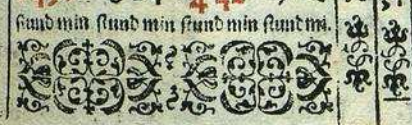 stund min stund min stund min stund mi.